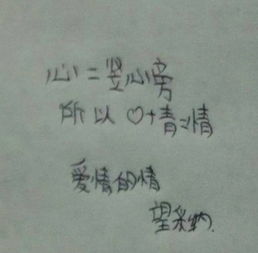 心=竖心旁
所以 ♡+青=情
爱情的情
望采纳.